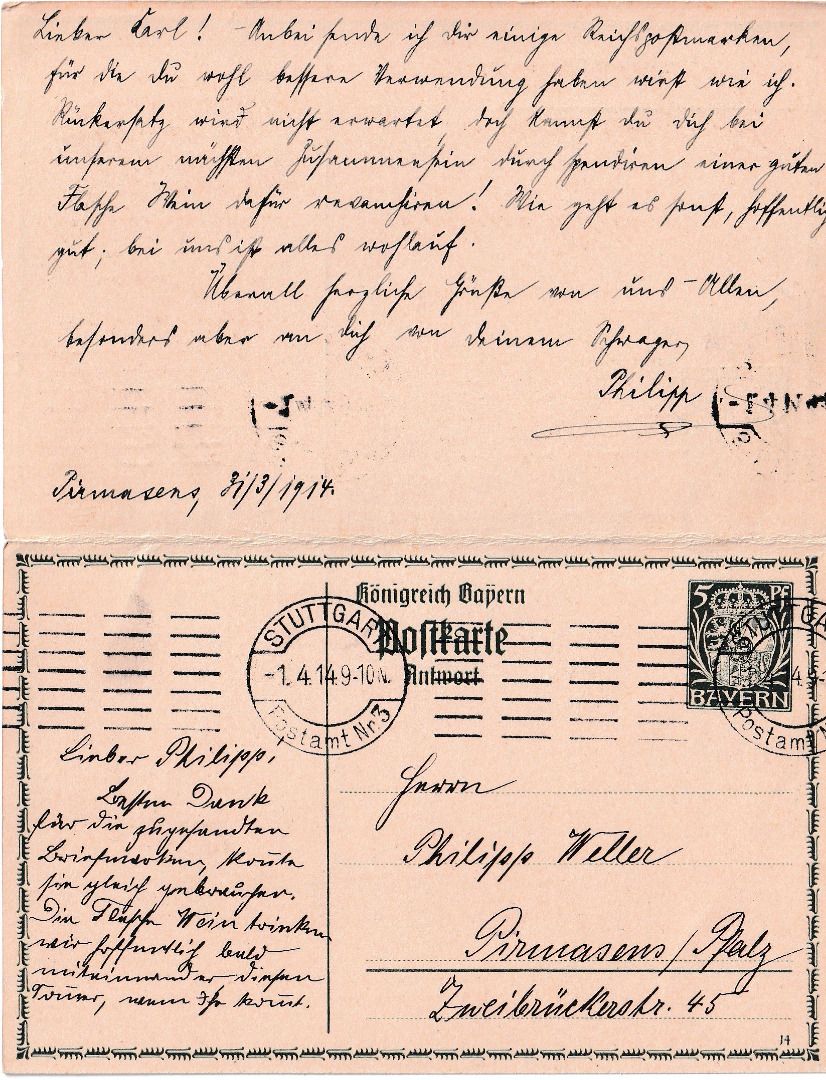 Lieber Karl! – Anbei sende ich dir einige Reichspostmarken,
für die du wohl bessere Verwendung haben wirst wie ich.
Rückersatz wird nicht erwartet, doch kannst du dich bei
unserem nächsten Zusammensein durch spendiren einer guten
Flasche Wein dafür revanchiren! Wie geht es sonst, hoffentlich
gut; bei uns ist alles wohlauf.
Überall herzliche Grüße von uns Allen,
besonders aber an dich von deinem Schwager
Philipp
Pirmasens, 31/3/1914.
Königreich Bayern
Postkarte
Antwort
5 Pf
BAYERN
STUTTGART
-1.4.14 9-10N.
Postamt Nr. 3
STUTTGA
4 9-
Postamt N
Lieber Philipp,
Besten Dank
für die zugesandten
Briefmarken, konnte
sie gleich gebrauchen.
Die Flasche Wein trinken
wir hoffentlich bald
miteinander diesen
Sommer, wenn Ihr kommt.
Herrn
Philipp Weller
Pirmasens / Pfalz
Zweibrückerstr. 45
14